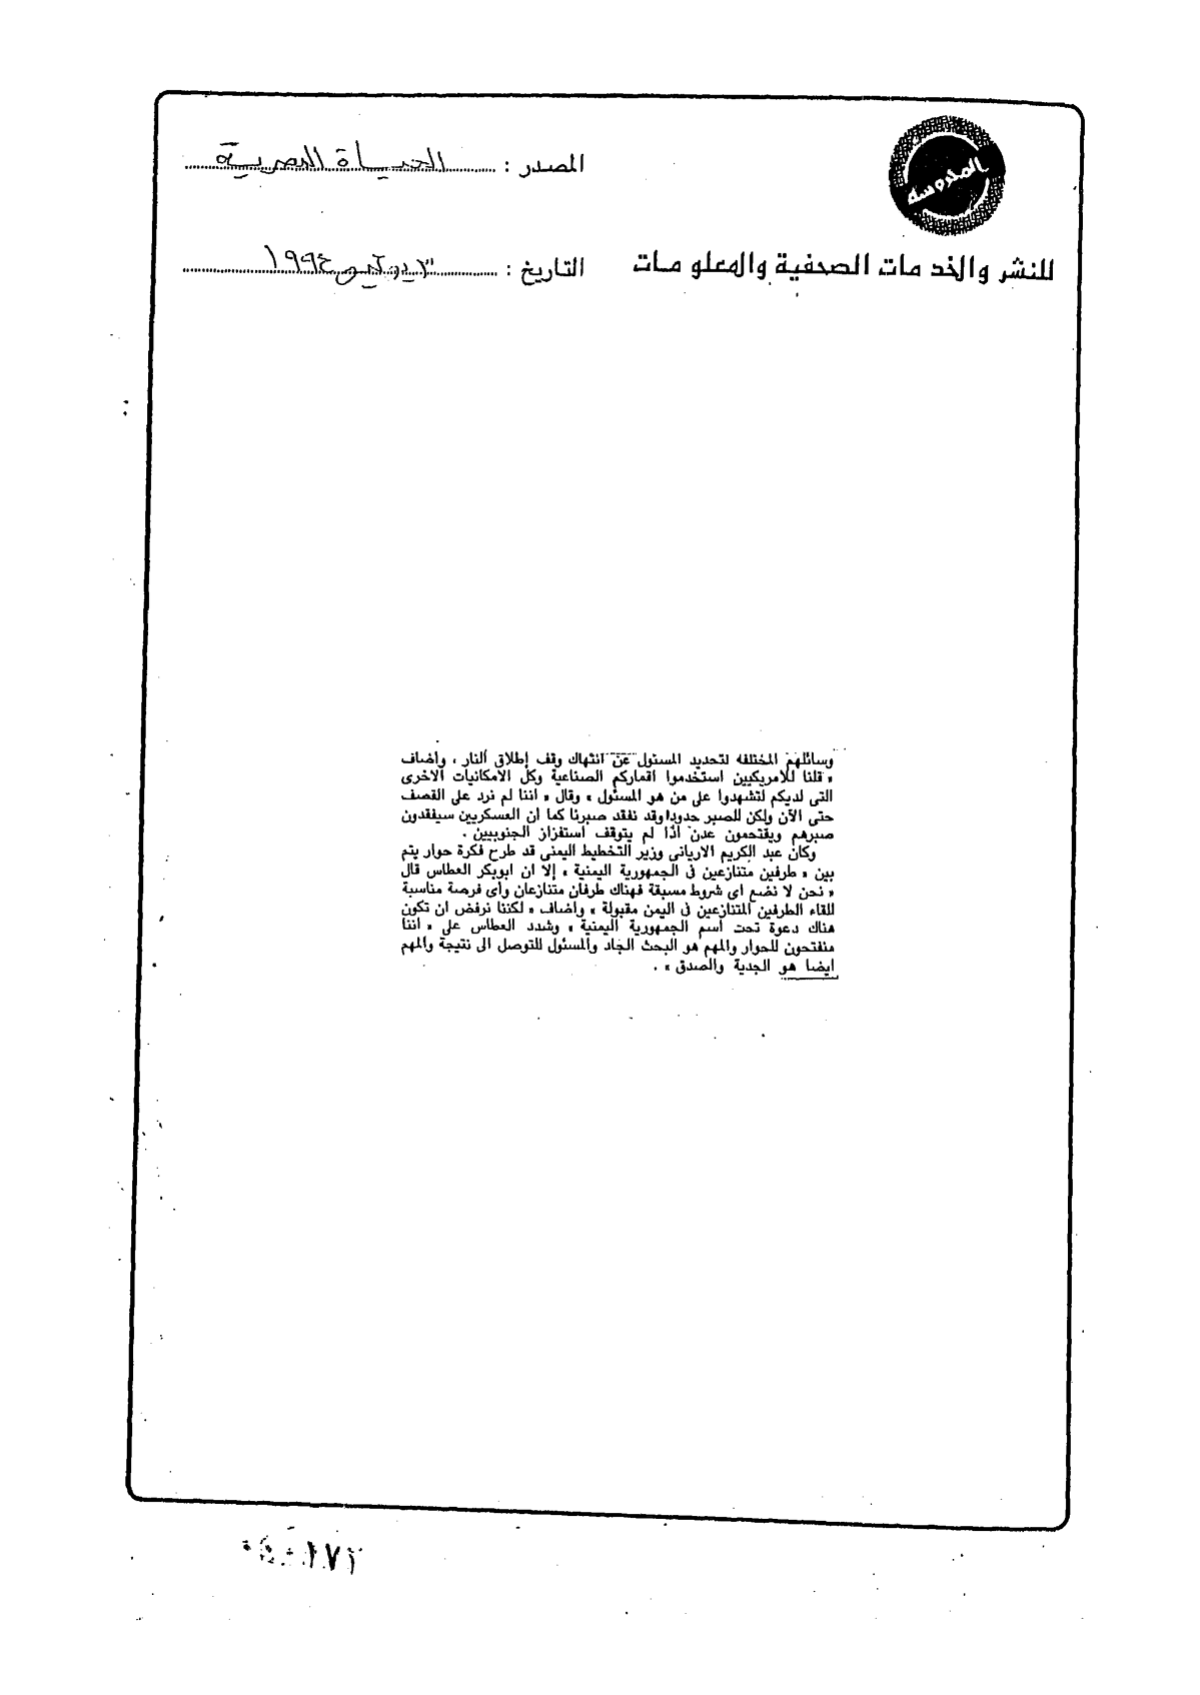 المحروسة
المصدر : الحياة المصرية
للنشر والخد مات الصحفية والمعلو مات
التاريخ : يونيو ١٩٩٤
وسائلهم المختلفه لتحديد المسئول عن انتهاك وقف إطلاق النار ، واضاف
« قلنا للأمريكيين استخدموا اقماركم الصناعية وكل الامكانيات الاخرى
التى لديكم لتشهدوا على من هو المسئول » وقال « اننا لم نرد على القصف
حتى الآن ولكن للصبر حدودا وقد نفقد صبرنا كما ان العسكريين سيفقدون
صبرهم ويقتحمون عدن اذا لم يتوقف استفزاز الجنوبيين .
وكان عبد الكريم الاريانى وزير التخطيط اليمنى قد طرح فكرة حوار يتم
بين « طرفين متنازعين فى الجمهورية اليمنية » إلا ان ابوبكر العطاس قال
« نحن لا نضع اى شروط مسبقة فهناك طرفان متنازعان وأى فرصة مناسبة
للقاء الطرفين المتنازعين فى اليمن مقبولة » واضاف « لكننا نرفض ان تكون
هناك دعوة تحت اسم الجمهورية اليمنية » وشدد العطاس على « اننا
منفتحون للحوار والمهم هو البحث الجاد والمسئول للتوصل الى نتيجة والمهم
ايضا هو الجدية والصدق » .